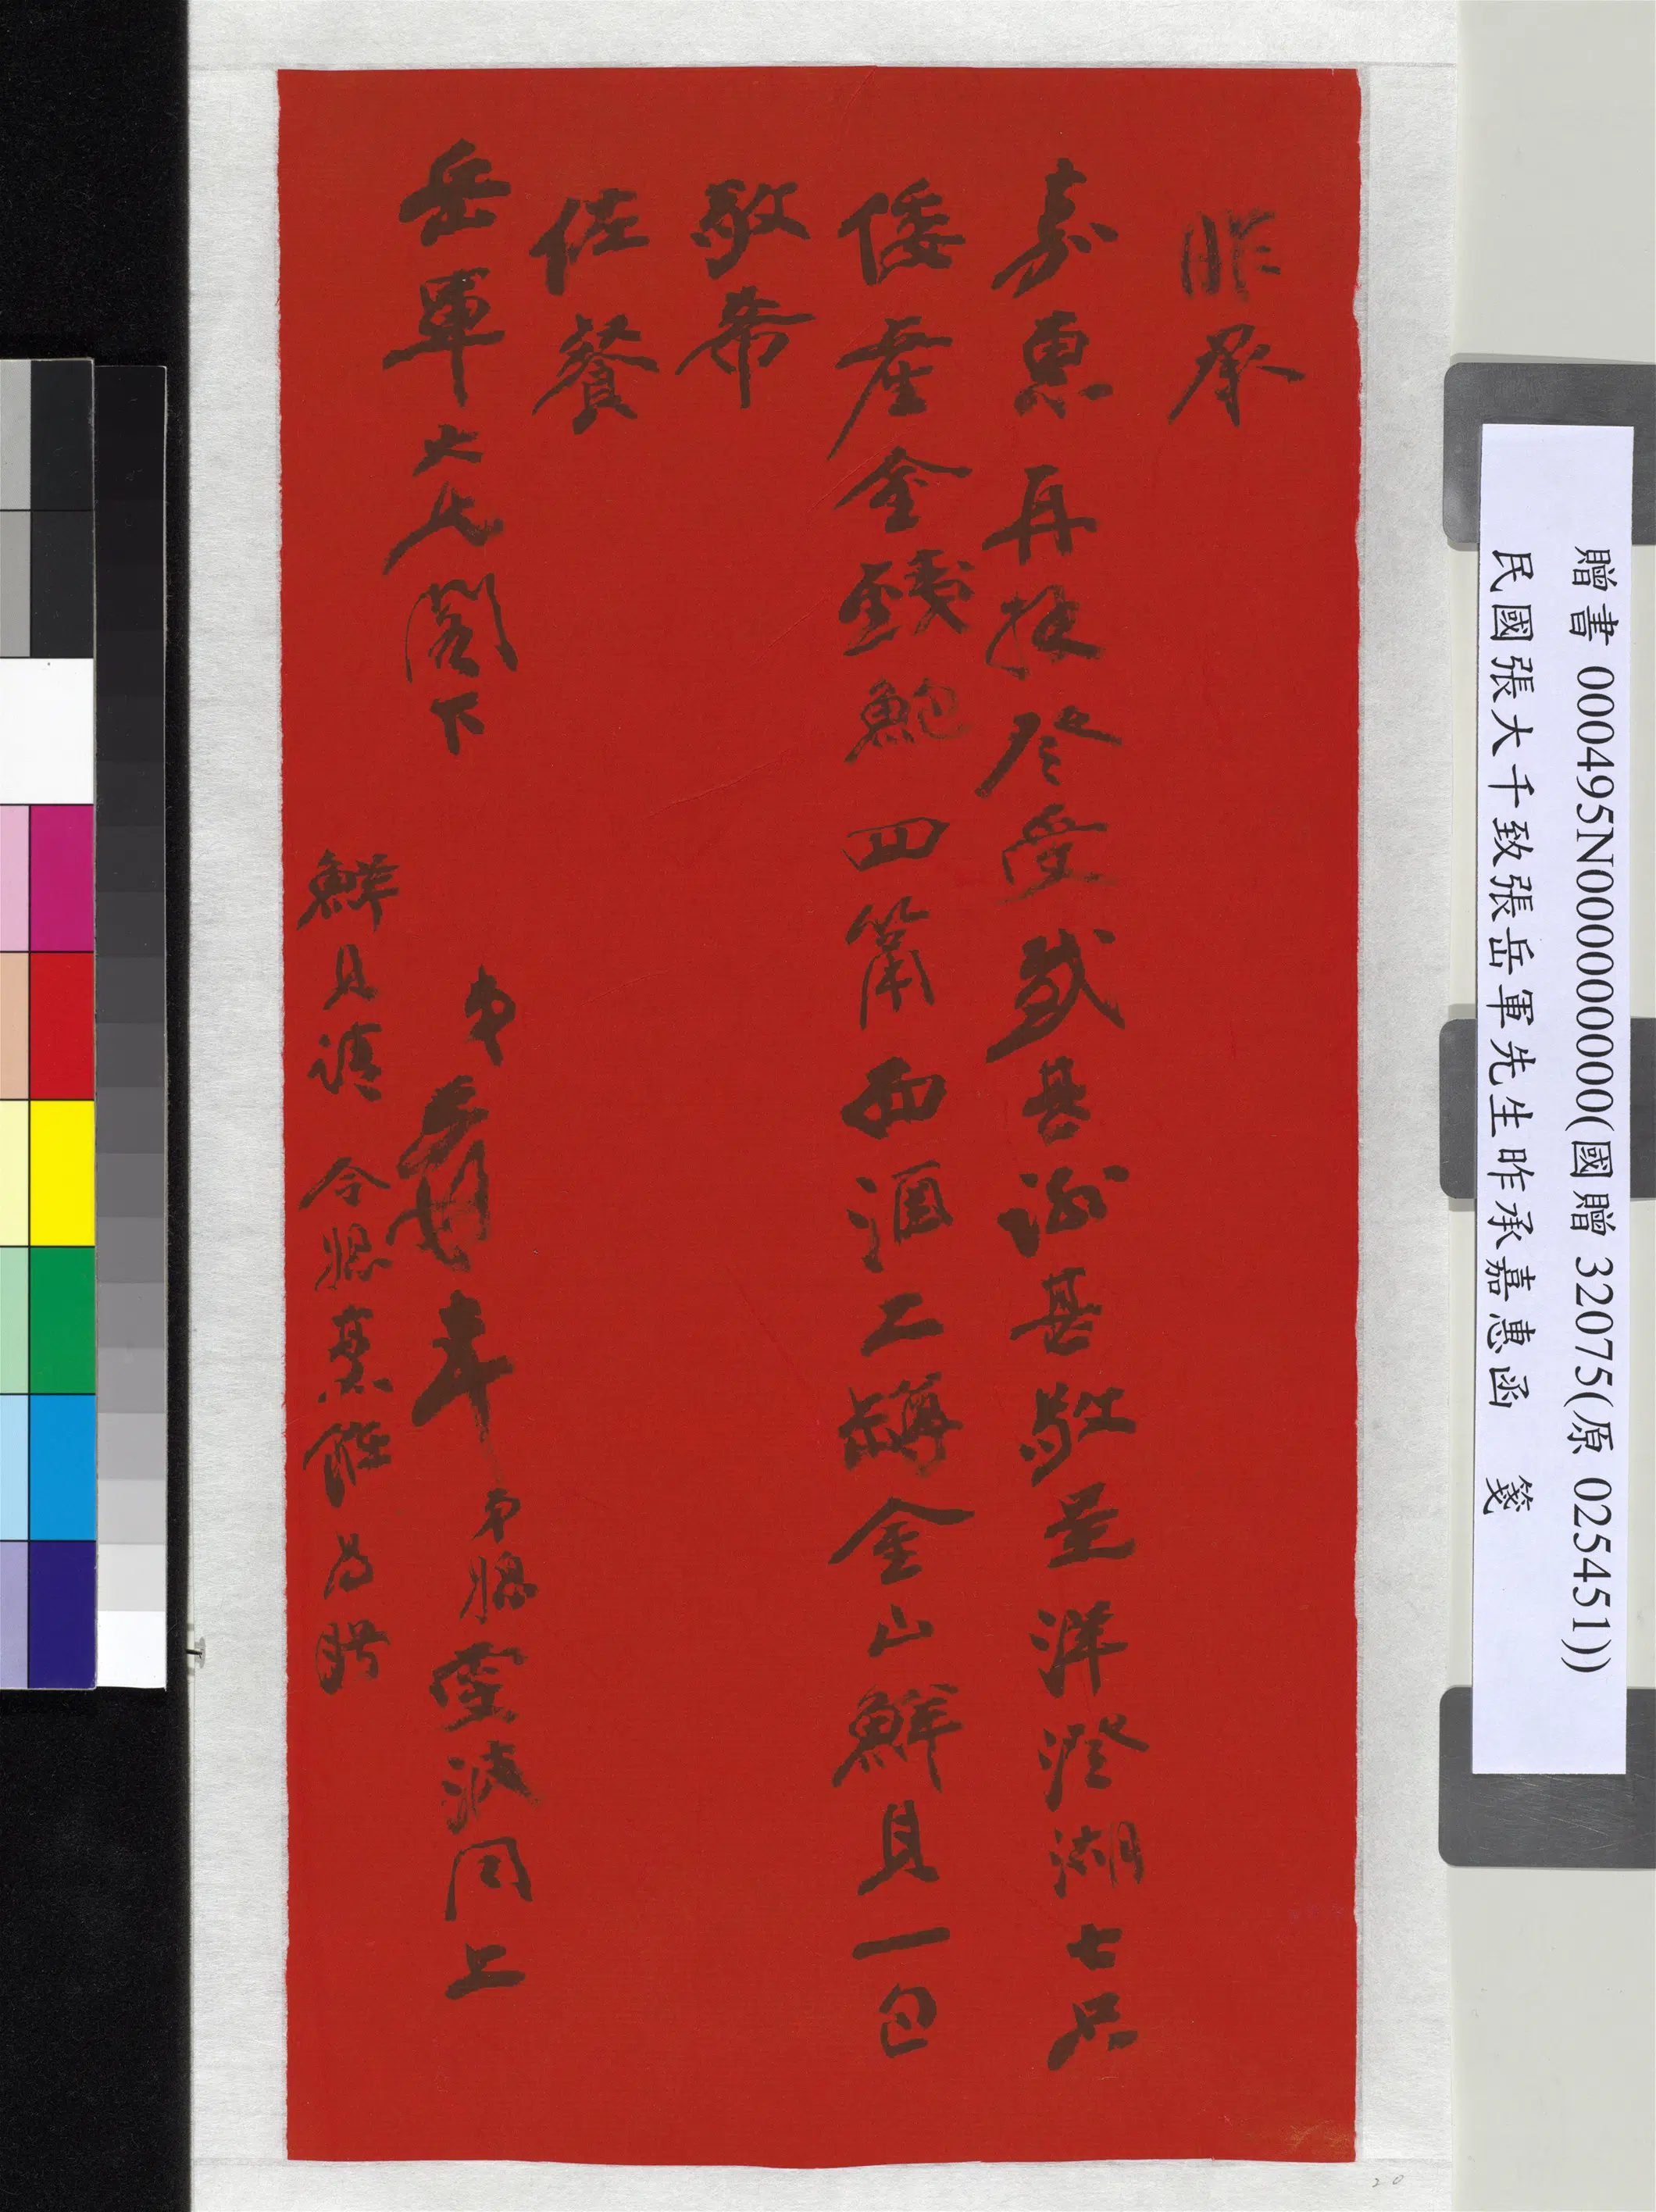 昨承
嘉惠再拜登受感甚謝甚敬呈洋澄湖七只
倭產金錢鮑四筩西酒二罇金山鮮貝一包
敬希
佐餐
岳軍大兄閣下
弟爰率弟婦雯波同上
鮮貝請 令 為盼
贈書 000495N000000000(國贈 32075(原 025451))
民國張大千致張岳軍先生昨承嘉惠函 箋
20